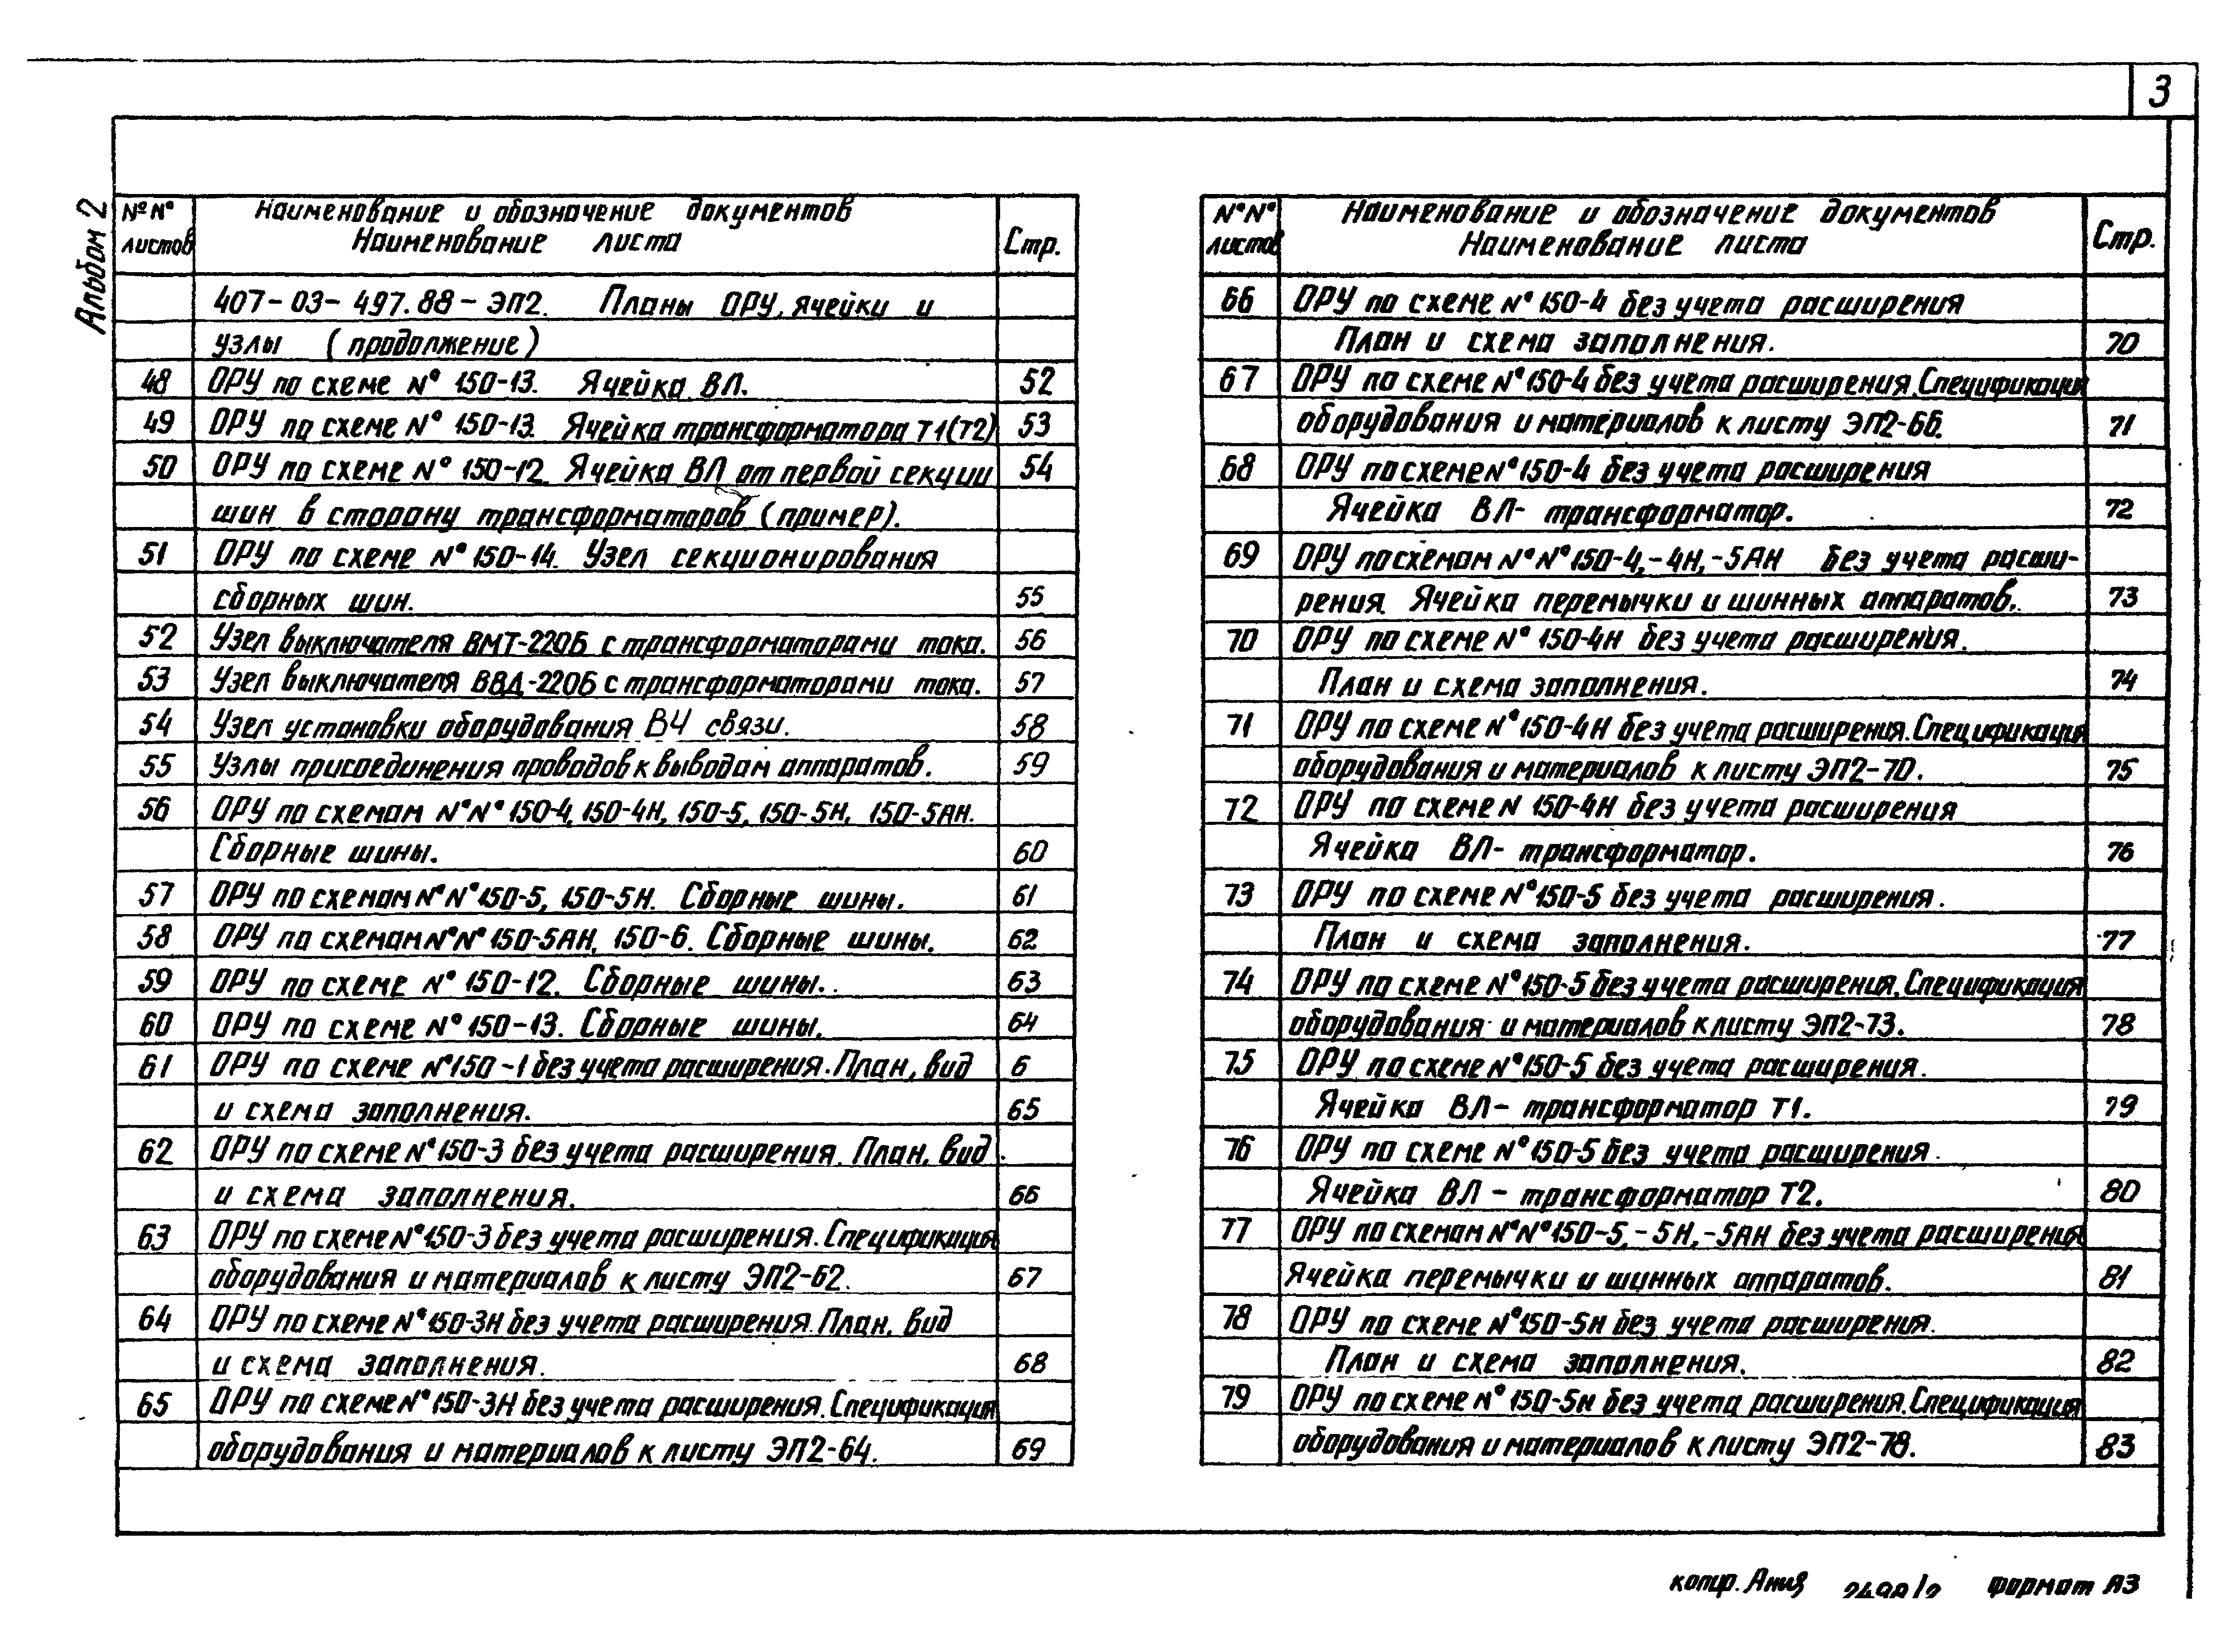 3
Альбом 2
№№ листов
Наименование и обозначение документов
Наименование листа
Стр.
407-03-497.88-ЭП2. Планы ОРУ, ячейки и
узлы (продолжение)
48 ОРУ по схеме № 150-13. Ячейка ВЛ. 52
49 ОРУ по схеме № 150-13. Ячейка трансформатора Т1(Т2) 53
50 ОРУ по схеме № 150-12. Ячейка ВЛ от первой секции 54
шин в сторону трансформаторов (пример).
51 ОРУ по схеме № 150-14. Узел секционирования
сборных шин. 55
52 Узел выключателя ВМТ-220Б с трансформаторами тока. 56
53 Узел выключателя ВВД-220Б с трансформаторами тока. 57
54 Узел установки оборудования ВЧ связи. 58
55 Узлы присоединения проводов к выводам аппаратов. 59
56 ОРУ по схемам №№ 150-4, 150-4Н, 150-5, 150-5Н, 150-5АН.
Сборные шины. 60
57 ОРУ по схемам №№ 150-5, 150-5Н. Сборные шины. 61
58 ОРУ по схемам №№ 150-5АН, 150-6. Сборные шины. 62
59 ОРУ по схеме № 150-12. Сборные шины. 63
60 ОРУ по схеме № 150-13. Сборные шины. 64
61 ОРУ по схеме № 150-1 без учета расширения. План, вид 6
и схема заполнения. 65
62 ОРУ по схеме № 150-3 без учета расширения. План, вид
и схема заполнения. 66
63 ОРУ по схеме № 150-3 без учета расширения. Спецификация
оборудования и материалов к листу ЭП2-62. 67
64 ОРУ по схеме № 150-3Н без учета расширения. План, вид
и схема заполнения. 68
65 ОРУ по схеме № 150-3Н без учета расширения. Спецификация
оборудования и материалов к листу ЭП2-64. 69
№№ листов
Наименование и обозначение документов
Наименование листа
Стр.
66 ОРУ по схеме № 150-4 без учета расширения
План и схема заполнения. 70
67 ОРУ по схеме № 150-4 без учета расширения. Спецификация
оборудования и материалов к листу ЭП2-66. 71
68 ОРУ по схеме № 150-4 без учета расширения
Ячейка ВЛ- трансформатор. 72
69 ОРУ по схемам №№ 150-4, -4Н, -5АН без учета расши-
рения. Ячейка перемычки и шинных аппаратов. 73
70 ОРУ по схеме № 150-4Н без учета расширения.
План и схема заполнения. 74
71 ОРУ по схеме № 150-4Н без учета расширения. Спецификация
оборудования и материалов к листу ЭП2-70. 75
72 ОРУ по схеме N 150-4Н без учета расширения
Ячейка ВЛ- трансформатор. 76
73 ОРУ по схеме № 150-5 без учета расширения.
План и схема заполнения. 77
74 ОРУ по схеме № 150-5 без учета расширения. Спецификация
оборудования и материалов к листу ЭП2-73. 78
75 ОРУ по схеме № 150-5 без учета расширения.
Ячейка ВЛ- трансформатор Т1. 79
76 ОРУ по схеме № 150-5 без учета расширения.
Ячейка ВЛ - трансформатор Т2. 80
77 ОРУ по схемам №№ 150-5, -5Н, -5АН без учета расширения
Ячейка перемычки и шинных аппаратов. 81
78 ОРУ по схеме № 150-5Н без учета расширения.
План и схема заполнения. 82
79 ОРУ по схеме № 150-5Н без учета расширения. Спецификация
оборудования и материалов к листу ЭП2-78. 83
копир. формат А3